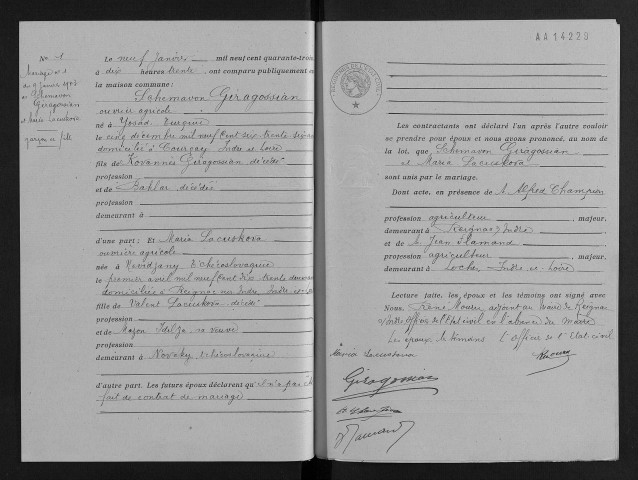 No 1
Mariage no 1
du 9 Janvier 1943
Schemavon
Giragossian
et Maria Lacuskova
garçon et fille
Le neuf Janvier mil neuf cent quarante-trois
à dix heures trente, ont comparu publiquement en
la maison commune:
Schemavon Giragossian
ouvrier agricole
né à Yosad, Turquie
le cinq décembre mil neuf cent six trente six ans
domicilié à Courçay, Indre et Loire
fils de Hovannés Giragossian, décédé
profession
et de Bahlar, décédée
profession
demeurant à
d'une part; Et Maria Lacuskova
ouvrière agricole
née à Tchécoslovaquie
le premier avril mil neuf cent dix trente deux ans
domiciliée à Reignac sur Indre, Indre-et-Loire
fille de Valent Lacuskova, décédé
profession
et de veuve
profession
demeurant à Novaky, Tchécoslovaquie
d'autre part. Les futurs époux déclarent qu'il n'a pas été
fait de contrat de mariage
AA 14229
Les contractants ont déclaré l'un après l'autre vouloir
se prendre pour époux et nous avons prononcé, au nom de
la loi, que Schemavon Giragossian
et Maria Lacuskova
sont unis par le mariage.
Dont acte, en présence de M. Alfred Champion
profession agriculteur, majeur,
demeurant à Reignac, Indre
et de M. Jean Flamand
profession agriculteur, majeur,
demeurant à Loches, Indre-et-Loire
Lecture faite, les époux et les témoins ont signé avec
Nous, René Moreu adjoint au Maire de Reignac
officier de l'Etat civil en l'absence du Maire
Les époux, les témoins L'officier de l'Etat civil
Maria Lacuskova
Giragossian
Flamand